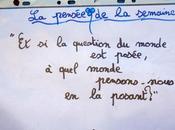 La pensée de la semaine
"Et si la question du monde
est posée,
à quel monde
pensons-nous
en la posant?"